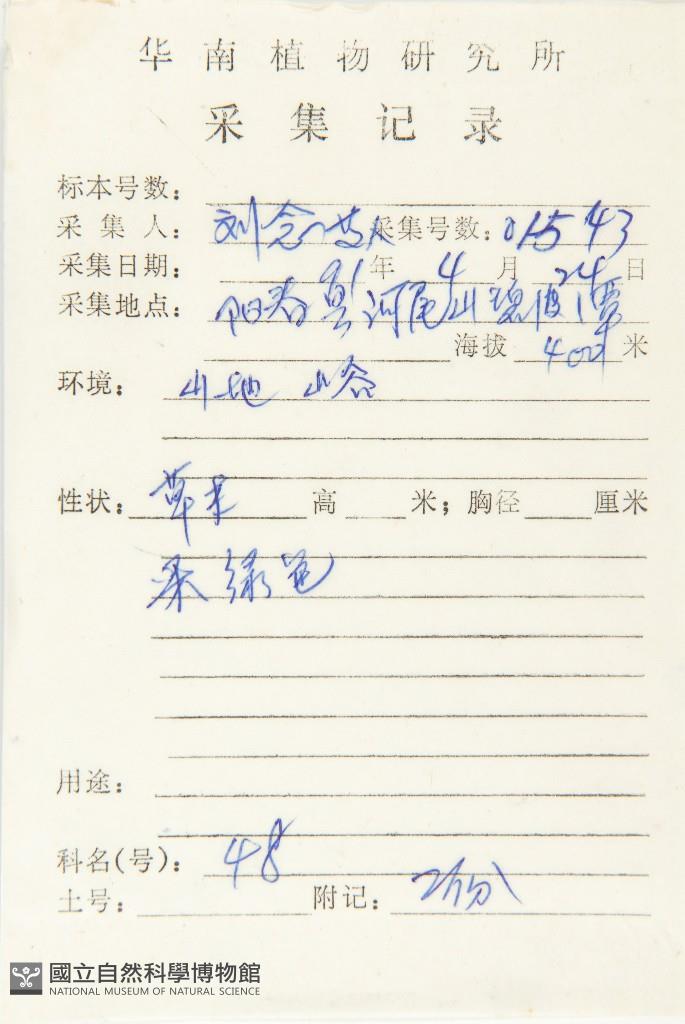 华南植物研究所
采集记录
标本号数：
采集人： 刘念 采集号数： 01543
采集日期： 91年 4月 24日
采集地点： 阳春县河尾山
海拔 400 米
环境： 山地 山谷
性状： 草本 高 米； 胸径 厘米
果绿色
用途：
科名(号)： 48
土号： 附记： 2份
國立自然科學博物館
NATIONAL MUSEUM OF NATURAL SCIENCE